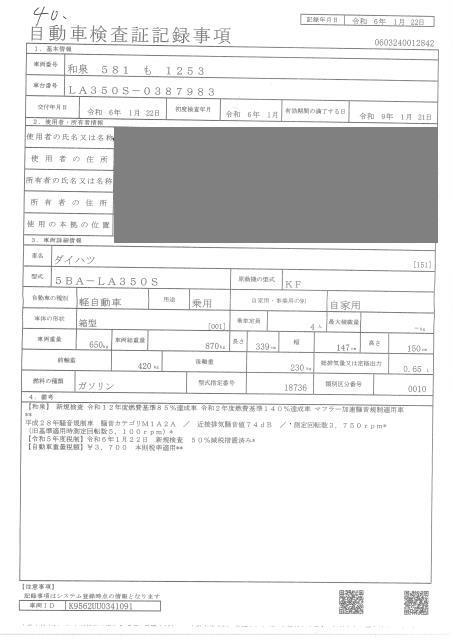 40.
記録年月日 令和 6年 1月 22日
自動車検査証記録事項
0603240012842
1. 基本情報
車両番号 和泉 581 も 1253
車台番号 LA350S-0387983
交付年月日 令和 6年 1月 22日 初度検査年月 令和 6年 1月 有効期間の満了する日 令和 9年 1月 21日
2. 使用者・所有者情報
使用者の氏名又は名称
使用者の住所
所有者の氏名又は名称
所有者の住所
使用の本拠の位置
3. 車両詳細情報
車名 ダイハツ [151]
型式 5BA-LA350S 原動機の型式 KF
自動車の種別 軽自動車 用途 乗用 自家用・事業用の別 自家用
車体の形状 箱型 [001] 乗車定員 4人 最大積載量 -kg
車両重量 650kg 車両総重量 870kg 長さ 339cm 幅 147cm 高さ 150cm
前軸重 420kg 後軸重 230kg 総排気量又は定格出力 0.65 l
燃料の種類 ガソリン 型式指定番号 18736 類別区分番号 0010
4. 備考
【和泉】 新規検査 令和12年度燃費基準85%達成車 令和2年度燃費基準140%達成車 マフラー加速騒音規制適用車
**
平成28年騒音規制車 騒音カテゴリM1A2A / 近接排気騒音値74dB / 測定回転数3,750rpm*
(旧基準適用時測定回転数5,100rpm)*
【令和5年度税制】令和6年1月22日 新規検査 50%減税措置済み*
【自動車重量税額】¥3,700 本則税率適用**
【注意事項】
記録事項はシステム登録時点の情報となります
車両ID K9562UU0341091